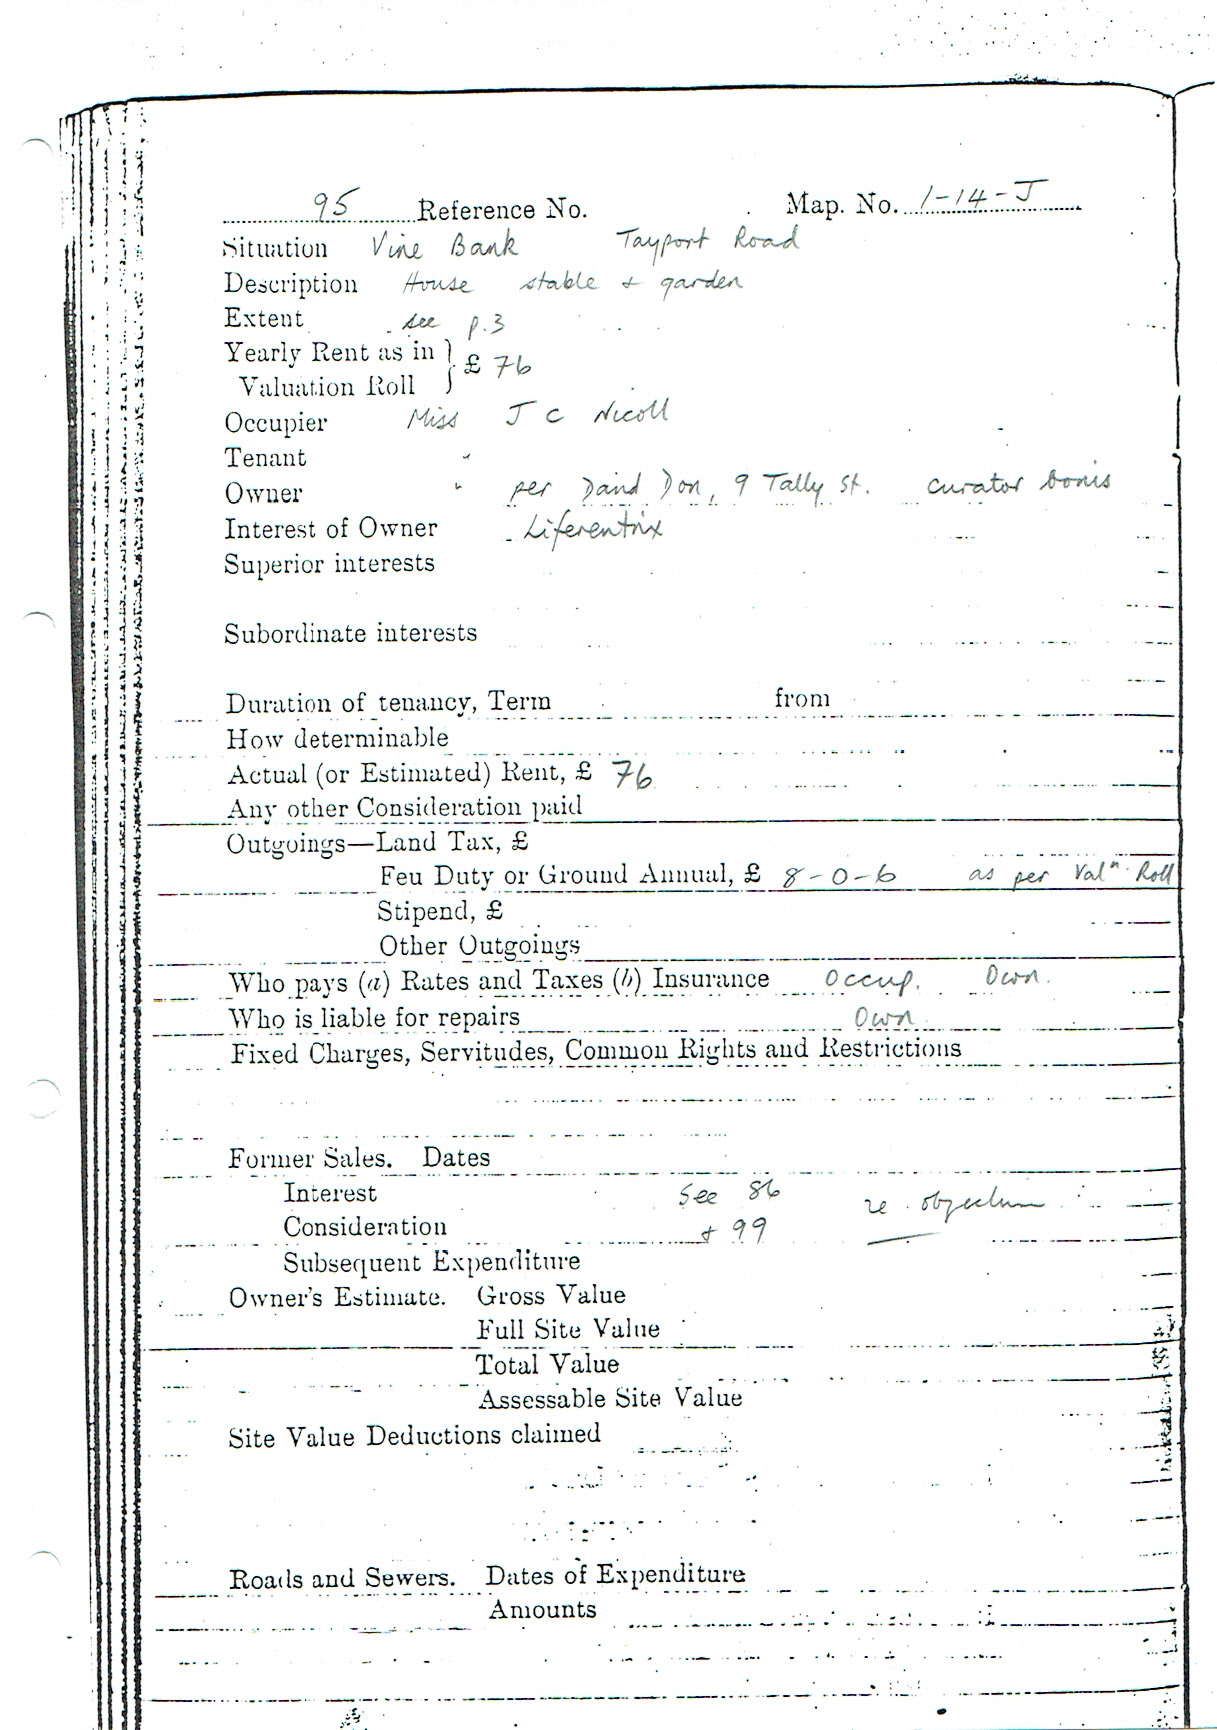 95 Reference No. Map. No. 1-14-J
Situation Vine Bank Tayport Road
Description House stable + garden
Extent see p.3
Yearly Rent as in } £ 76
Valuation Roll
Occupier Miss J C Nicoll
Tenant "
Owner " per David Don, 9 Tally St. curator bonis
Interest of Owner Liferentrix
Superior interests
Subordinate interests
Duration of tenancy, Term from
How determinable
Actual (or Estimated) Rent, £ 76
Any other Consideration paid
Outgoings—Land Tax, £
Feu Duty or Ground Annual, £ 8-0-6 as per Valn Roll
Stipend, £
Other Outgoings
Who pays (a) Rates and Taxes (b) Insurance Occup. Own.
Who is liable for repairs Own
Fixed Charges, Servitudes, Common Rights and Restrictions
Former Sales. Dates
Interest See 86 re objection
Consideration + 99
Subsequent Expenditure
Owner's Estimate. Gross Value
Full Site Value
Total Value
Assessable Site Value
Site Value Deductions claimed
Roads and Sewers. Dates of Expenditure
Amounts